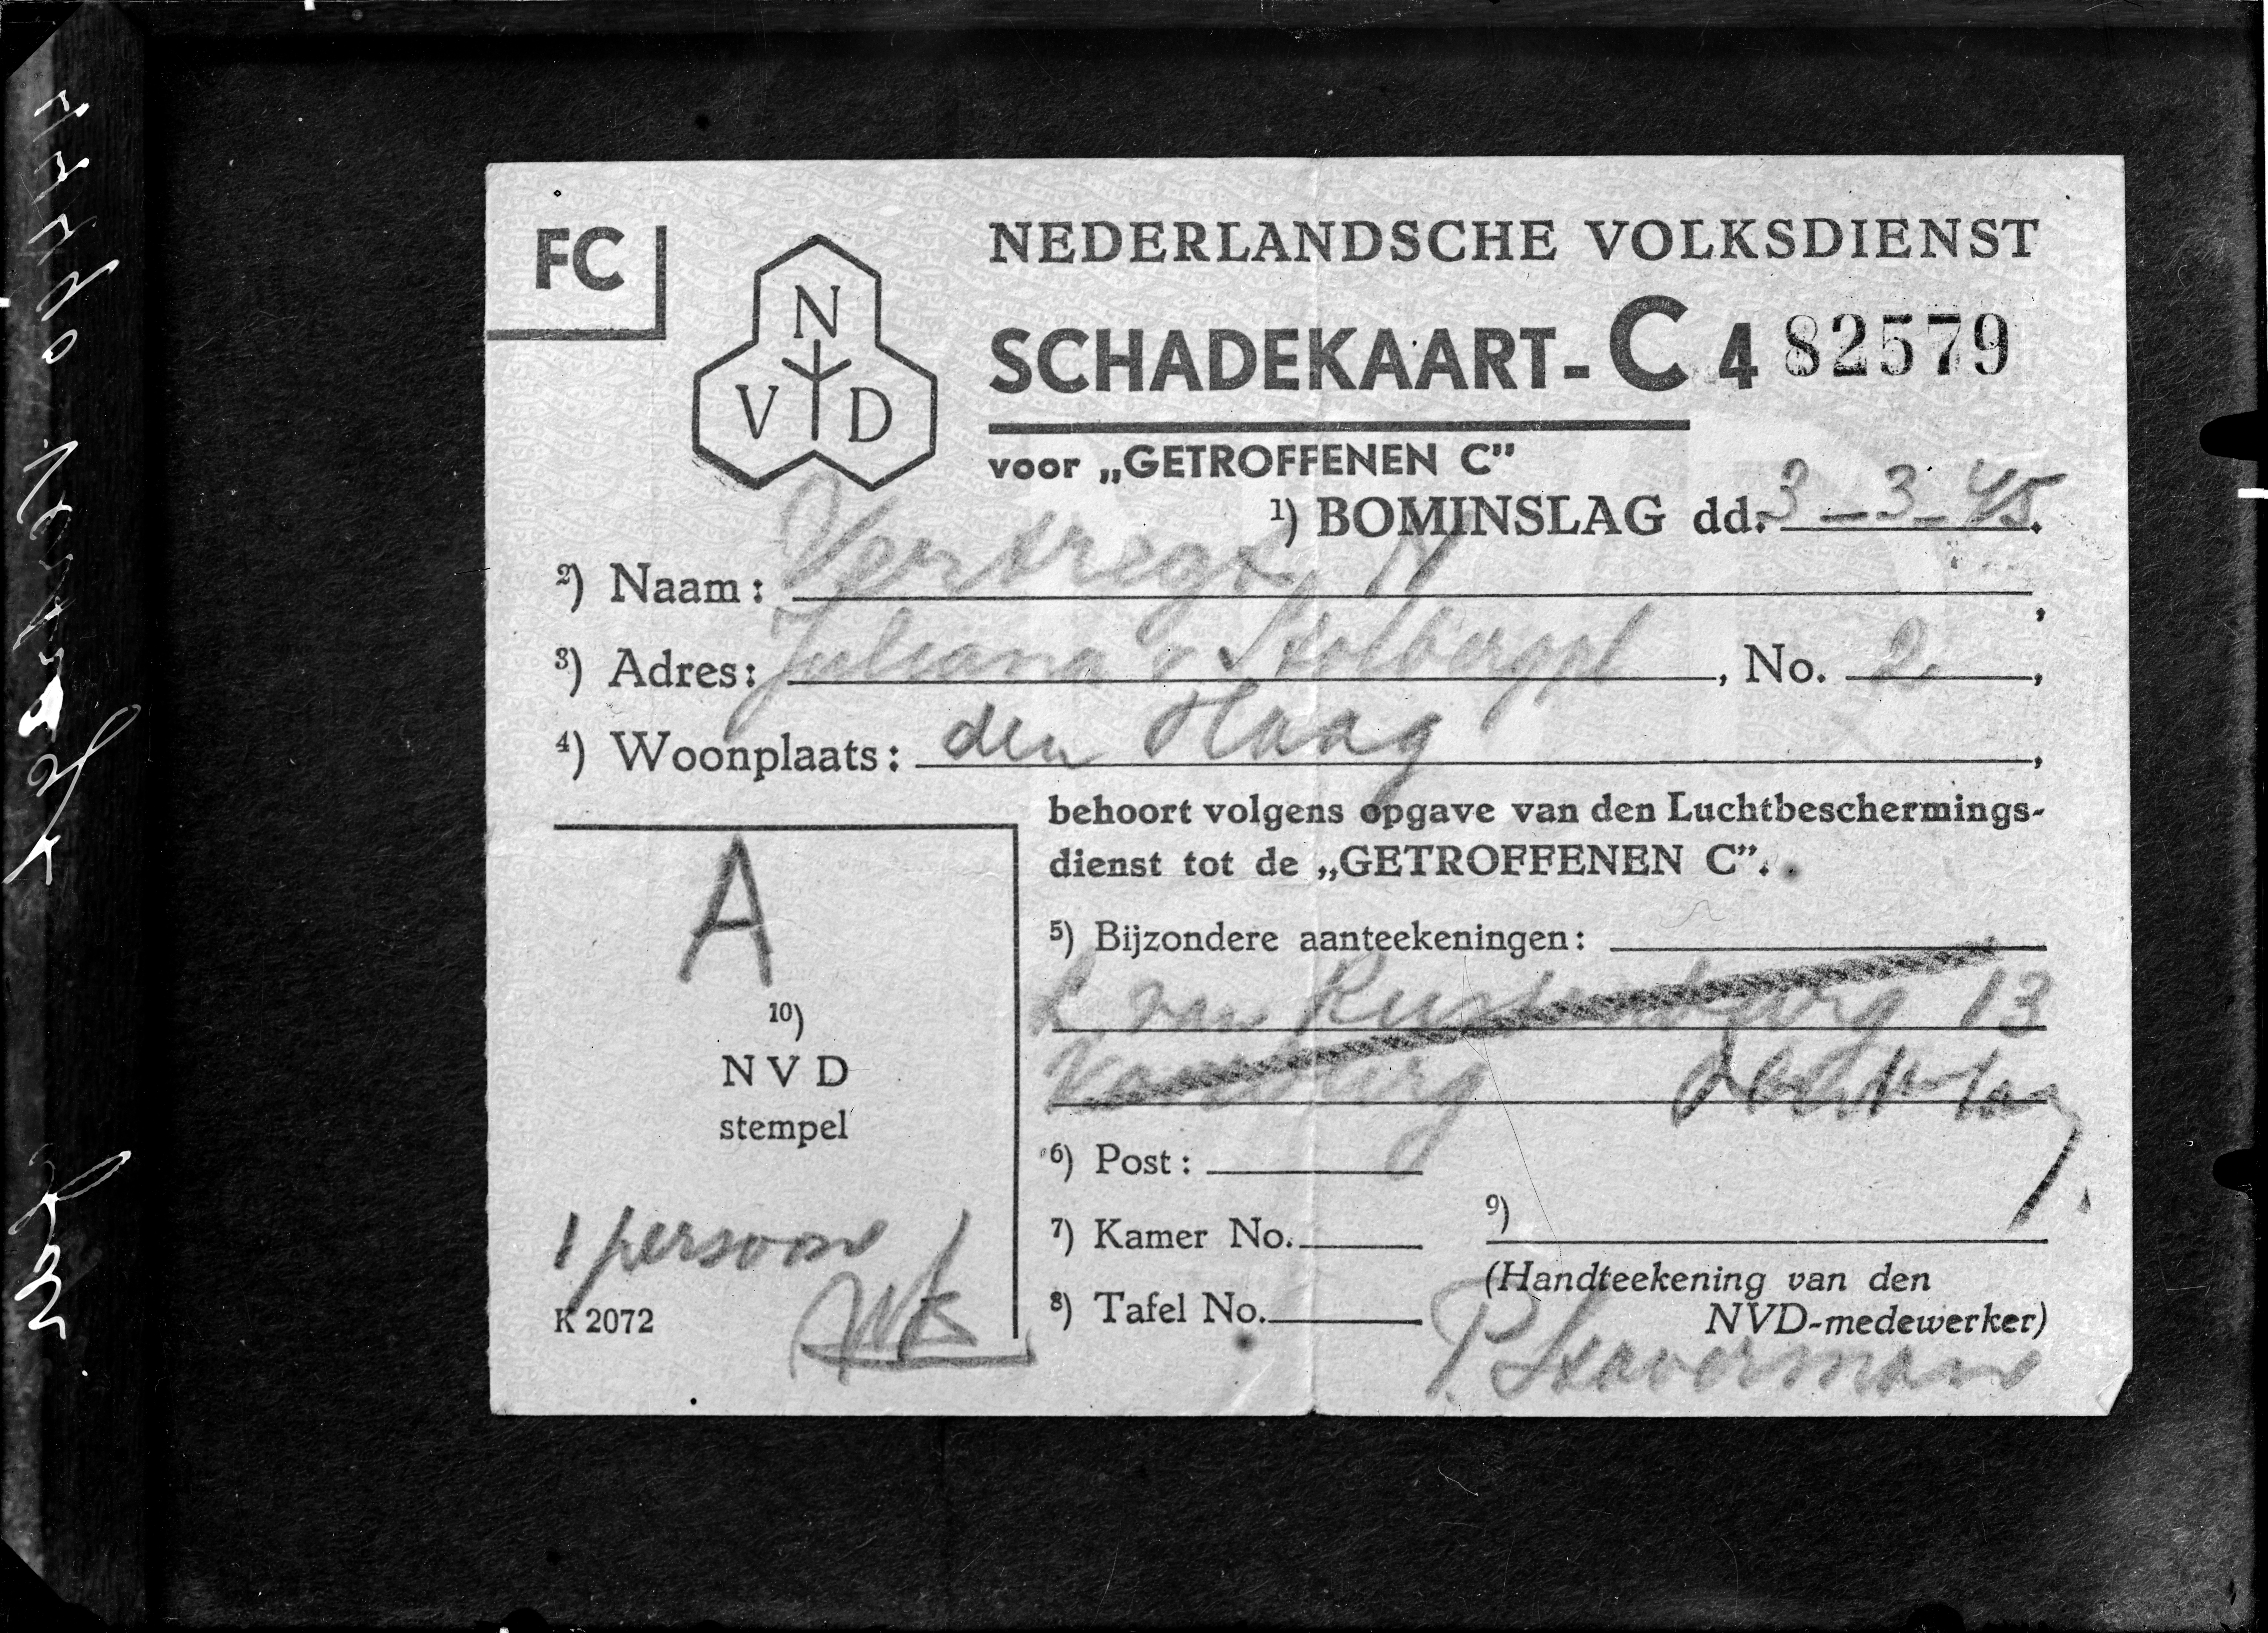 FC
N
V D
NEDERLANDSCHE VOLKSDIENST
SCHADEKAART- C 4 82579
voor „GETROFFENEN C”
1) BOMINSLAG dd. 3-3-45.
2) Naam: Vertregt N,
3) Adres: Juliana v Stolbergpl, No. 2,
4) Woonplaats: den Haag,
behoort volgens opgave van den Luchtbeschermings-
dienst tot de „GETROFFENEN C”.
5) Bijzondere aanteekeningen:
L van Rustenburg 13
Voorburg
6) Post:
7) Kamer No.
8) Tafel No.
9)
(Handteekening van den
NVD-medewerker)
P. Stavermann
A
10)
NVD
stempel
1 persoon
K 2072